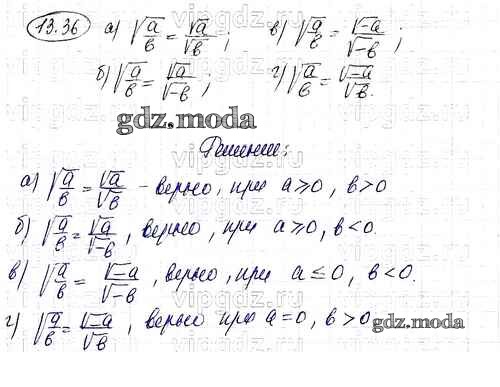 13.36 а) √a/b = √a/√b; в) √a/b = √-a/√-b;
б) √a/b = √a/√-b; г) √a/b = √-a/√b.
gdz.moda
Решение:
а) √a/b = √a/√b - верно, при a>0, b>0
б) √a/b = √a/√-b, верно, при a⩾0, b<0.
в) √a/b = √-a/√-b, верно, при a≤0, b<0.
г) √a/b = √-a/√b, верно при a=0, b>0
gdz.moda